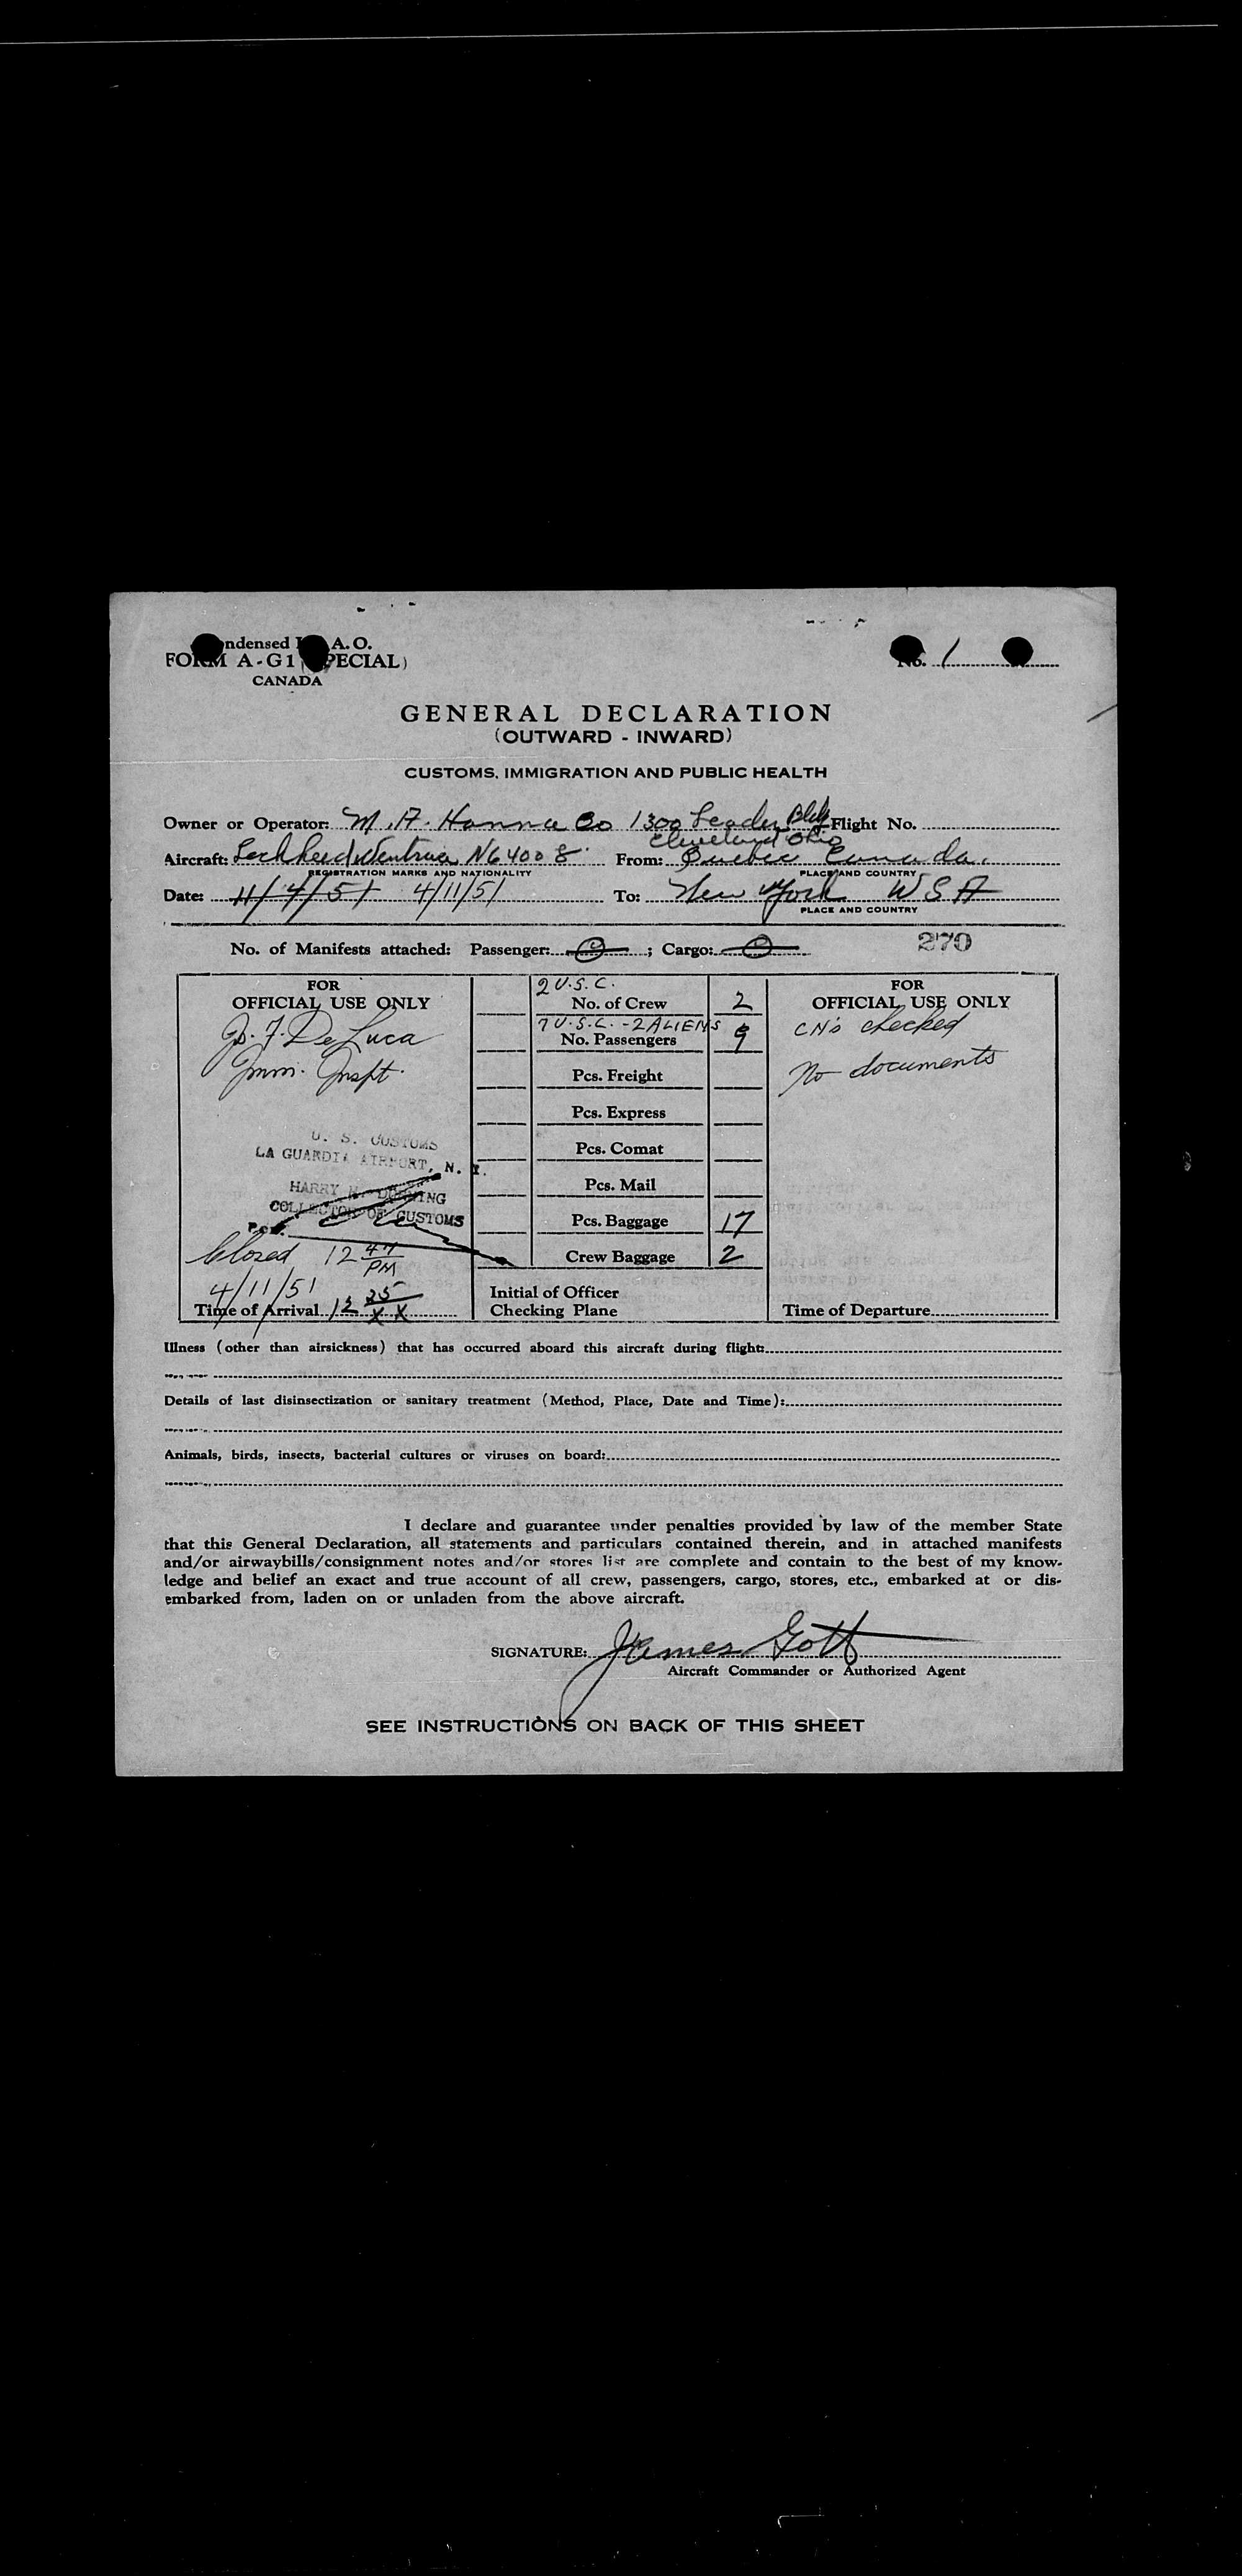 ndensed I A. O.
FORM A-G1 (SPECIAL)
CANADA
No. 1
GENERAL DECLARATION
(OUTWARD - INWARD)
CUSTOMS, IMMIGRATION AND PUBLIC HEALTH
Owner or Operator: M. A. Hanna Co 1300 Leader Bldg Flight No.
Cleveland Ohio
Aircraft: Lockheed Ventura N64008 From: Quebec Canada.
REGISTRATION MARKS AND NATIONALITY PLACE AND COUNTRY
Date: 11/4/51 4/11/51 To: New York USA
PLACE AND COUNTRY
No. of Manifests attached: Passenger: 0 ; Cargo: 0
270
FOR
OFFICIAL USE ONLY
De Luca
Imm. Inspt.
U. S. CUSTOMS
LA GUARDIA AIRPORT, N. Y.
HARRY M. DURNING
COLLECTOR OF CUSTOMS
Closed 12 47 PM
4/11/51
Time of Arrival 12 25
2 U.S.C.
No. of Crew 2
7 U.S.C. - 2 ALIENS
No. Passengers 9
Pcs. Freight
Pcs. Express
Pcs. Comat
Pcs. Mail
Pcs. Baggage 17
Crew Baggage 2
Initial of Officer
Checking Plane
FOR
OFFICIAL USE ONLY
CN's checked
No documents
Time of Departure
Illness (other than airsickness) that has occurred aboard this aircraft during flight:
Details of last disinsectization or sanitary treatment (Method, Place, Date and Time):
Animals, birds, insects, bacterial cultures or viruses on board:
I declare and guarantee under penalties provided by law of the member State
that this General Declaration, all statements and particulars contained therein, and in attached manifests
and/or airwaybills/consignment notes and/or stores list are complete and contain to the best of my know-
ledge and belief an exact and true account of all crew, passengers, cargo, stores, etc., embarked at or dis-
embarked from, laden on or unladen from the above aircraft.
SIGNATURE: James Gott
Aircraft Commander or Authorized Agent
SEE INSTRUCTIONS ON BACK OF THIS SHEET